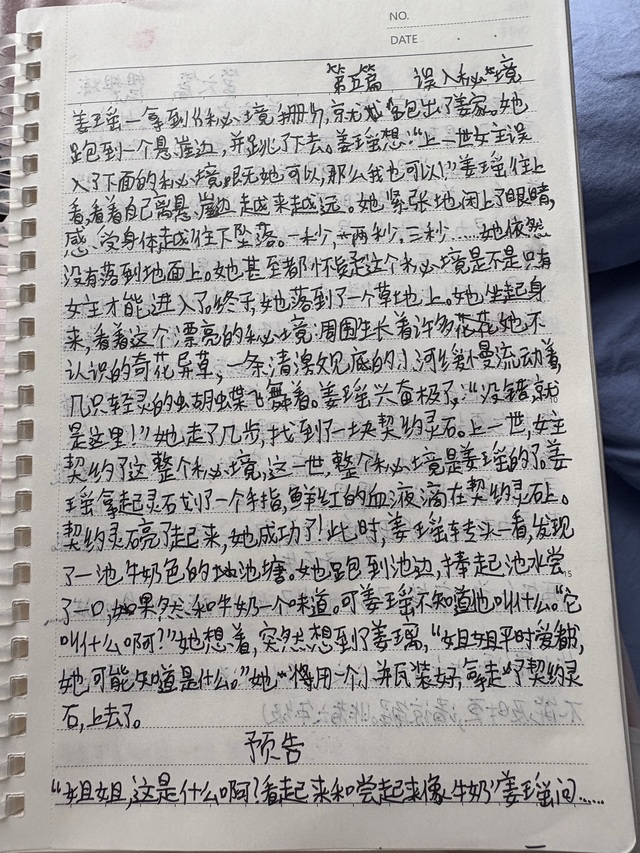 NO.
DATE
第五篇 误入秘境
姜瑶一拿到《秘境手册》，就跑出了姜家。她
跑到一个悬崖边，并跳了下去。姜瑶想：“上一世女主误
入了下面的秘境，既然她可以，那么我也可以！”姜瑶往上
看，看着自己离悬崖边越来越远。她紧张地闭上了眼睛，
感受身体越往下坠落。一秒，两秒，三秒……她依然
没有落到地面上。她甚至都怀疑起这个秘境是不是只有
女主才能进入了。终于，她落到了一个草地上。她坐起身
来，看着这个漂亮的秘境：周围生长着许多她不
认识的奇花异草，一条清澈见底的小河缓慢流动着，
几只轻灵的蝴蝶飞舞着。姜瑶兴奋极了，“没错，就
是这里！”她走了几步，找到了一块契约灵石。上一世，女主
契约了这整个秘境，这一世，整个秘境是姜瑶的了。姜
瑶拿起灵石划了一个手指，鲜红的血液滴在契约灵石上。
契约灵石亮了起来，她成功了！此时，姜瑶转头一看，发现
了一池牛奶色的池塘。她跑到池边，捧起池水尝
了一口，如果然和牛奶一个味道。可姜瑶不知道他叫什么。“它
叫什么啊？”她想着，突然想到了姜璃，“姐姐平时爱看书，
她可能知道是什么。”她将用一个小瓶装好，拿走了契约灵
石，上去了。
预告
“姐姐，这是什么啊？看起来和尝起来像牛奶”姜瑶问……